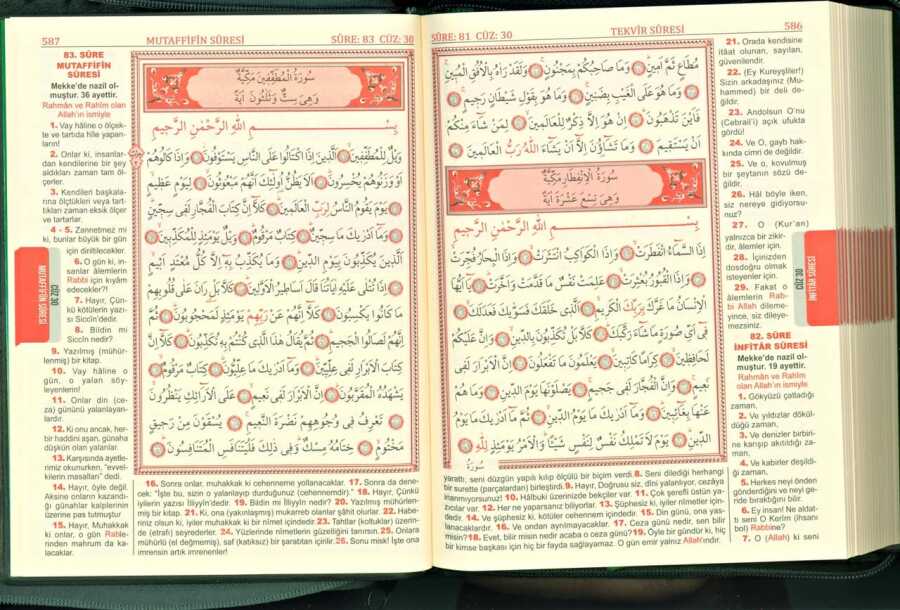 586
TEKVİR SÛRESİ
SÛRE: 81 CÜZ: 30
مُطَاعٍ ثَمَّ اَمِينٍ وَمَا صَاحِبُكُمْ بِمَجْنُونٍ وَلَقَدْ رَاٰهُ بِالْاُفُقِ الْمُبِينِ
وَمَا هُوَ عَلَى الْغَيْبِ بِضَنِينٍ وَمَا هُوَ بِقَوْلِ شَيْطَانٍ رَجِيمٍ
فَاَيْنَ تَذْهَبُونَ اِنْ هُوَ اِلَّا ذِكْرٌ لِلْعَالَمِينَ لِمَنْ شَاءَ مِنْكُمْ
اَنْ يَسْتَقِيمَ وَمَا تَشَاؤُنَ اِلَّا اَنْ يَشَاءَ اللّٰهُ رَبُّ الْعَالَمِينَ
سُورَةُ الْاِنْفِطَارِ مَكِّيَّةٌ
وَهِىَ تِسْعَ عَشْرَةَ اٰيَةً
بِسْمِ اللّٰهِ الرَّحْمٰنِ الرَّحِيمِ
اِذَا السَّمَاءُ انْفَطَرَتْ وَاِذَا الْكَوَاكِبُ انْتَثَرَتْ وَاِذَا الْبِحَارُ فُجِّرَتْ
وَاِذَا الْقُبُورُ بُعْثِرَتْ عَلِمَتْ نَفْسٌ مَا قَدَّمَتْ وَاَخَّرَتْ يَا اَيُّهَا
الْاِنْسَانُ مَا غَرَّكَ بِرَبِّكَ الْكَرِيمِ اَلَّذِى خَلَقَكَ فَسَوّٰيكَ فَعَدَلَكَ
فِى اَىِّ صُورَةٍ مَا شَاءَ رَكَّبَكَ كَلَّا بَلْ تُكَذِّبُونَ بِالدِّينِ وَاِنَّ عَلَيْكُمْ
لَحَافِظِينَ كِرَامًا كَاتِبِينَ يَعْلَمُونَ مَا تَفْعَلُونَ اِنَّ الْاَبْرَارَ لَفِى
نَعِيمٍ وَاِنَّ الْفُجَّارَ لَفِى جَحِيمٍ يَصْلَوْنَهَا يَوْمَ الدِّينِ وَمَا هُمْ
عَنْهَا بِغَائِبِينَ وَمَا اَدْرٰيكَ مَا يَوْمُ الدِّينِ ثُمَّ مَا اَدْرٰيكَ مَا يَوْمُ
الدِّينِ يَوْمَ لَا تَمْلِكُ نَفْسٌ لِنَفْسٍ شَيْئًا وَالْاَمْرُ يَوْمَئِذٍ لِلّٰهِ
سُورَةُ
21. Orada kendisine
itâat olunan, sayılan,
güvenilendir.
22. (Ey Kureyşliler!)
Sizin arkadaşınız (Mu-
hammed) bir deli de-
ğildir.
23. Andolsun O'nu
(Cebrail'i) açık ufukta
gördü!
24. Ve O, gayb hak-
kında cimri de değildir.
25. Ve o, kovulmuş
bir şeytanın sözü de-
ğildir.
26. Hâl böyle iken,
siz nereye gidiyorsu-
nuz?
27. O (Kur'an)
yalnızca bir zikir-
dir, âlemler için.
28. İçinizden
dosdoğru olmak
isteyenler için.
29. Fakat o
âlemlerin Rab-
bi Allah dileme-
yince, siz dileye-
mezsiniz.
82. SÛRE
İNFİTÂR SÛRESİ
Mekke'de nazil ol-
muştur. 19 ayettir.
Rahmân ve Rahîm
olan Allah'ın ismiyle
1. Gökyüzü çatladığı
zaman,
2. Ve yıldızlar dökül-
düğü zaman,
3. Ve denizler birbiri-
ne karışıp akıtıldığı za-
man,
4. Ve kabirler deşildi-
ği zaman,
5. Herkes neyi önden
gönderdiğini ve neyi ge-
ride bıraktığını bilir.
6. Ey insan! Ne aldat-
tı seni O Kerîm (ihsanı
bol) Rabbine?
7. O (Allah) ki seni
CÜZ 30
İNFİTÂR SÛRESİ
yarattı, seni düzgün yapılı kılıp ölçülü bir biçim verdi. 8. Seni dilediği herhangi
bir surette (parçalardan) birleştirdi. 9. Hayır, Doğrusu siz, dîni yalanlıyor, cezaya
inanmıyorsunuz! 10. Hâlbuki üzerinizde bekçiler var. 11. Çok şerefli üstün ya-
zıcılar var. 12. Her ne yaparsanız biliyorlar. 13. Şüphesiz ki, iyiler nîmetler için-
dedir. 14. Ve şüphesiz ki, kötüler cehennemin içindedir. 15. Din günü, ona yas-
lanacaklardır. 16. Ve ondan ayrılmayacaklar. 17. Ceza günü nedir, sen bilir
misin? 18. Evet, bilir misin nedir acaba o ceza günü? 19. Öyle bir gündür ki, hiç
bir kimse başkası için hiç bir fayda sağlayamaz. O gün emir yalnız Allah'ındır.
587
MUTAFFİFÎN SÛRESİ
SÛRE: 83 CÜZ: 30
سُورَةُ الْمُطَفِّفِينَ مَكِّيَّةٌ
وَهِىَ سِتٌّ وَثَلٰثُونَ اٰيَةً
بِسْمِ اللّٰهِ الرَّحْمٰنِ الرَّحِيمِ
وَيْلٌ لِلْمُطَفِّفِينَ اَلَّذِينَ اِذَا اكْتَالُوا عَلَى النَّاسِ يَسْتَوْفُونَ وَاِذَا كَالُوهُمْ
اَوْ وَزَنُوهُمْ يُخْسِرُونَ اَلَا يَظُنُّ اُولٰئِكَ اَنَّهُمْ مَبْعُوثُونَ لِيَوْمٍ عَظِيمٍ
يَوْمَ يَقُومُ النَّاسُ لِرَبِّ الْعَالَمِينَ كَلَّا اِنَّ كِتَابَ الْفُجَّارِ لَفِى سِجِّينٍ
وَمَا اَدْرٰيكَ مَا سِجِّينٌ كِتَابٌ مَرْقُومٌ وَيْلٌ يَوْمَئِذٍ لِلْمُكَذِّبِينَ
اَلَّذِينَ يُكَذِّبُونَ بِيَوْمِ الدِّينِ وَمَا يُكَذِّبُ بِهِ اِلَّا كُلُّ مُعْتَدٍ اَثِيمٍ
اِذَا تُتْلٰى عَلَيْهِ اٰيَاتُنَا قَالَ اَسَاطِيرُ الْاَوَّلِينَ كَلَّا بَلْ رَانَ عَلٰى قُلُوبِهِمْ
مَا كَانُوا يَكْسِبُونَ كَلَّا اِنَّهُمْ عَنْ رَبِّهِمْ يَوْمَئِذٍ لَمَحْجُوبُونَ ثُمَّ
اِنَّهُمْ لَصَالُوا الْجَحِيمِ ثُمَّ يُقَالُ هٰذَا الَّذِى كُنْتُمْ بِهِ تُكَذِّبُونَ كَلَّا اِنَّ
كِتَابَ الْاَبْرَارِ لَفِى عِلِّيِّينَ وَمَا اَدْرٰيكَ مَا عِلِّيُّونَ كِتَابٌ مَرْقُومٌ
يَشْهَدُهُ الْمُقَرَّبُونَ اِنَّ الْاَبْرَارَ لَفِى نَعِيمٍ عَلَى الْاَرَائِكِ يَنْظُرُونَ
تَعْرِفُ فِى وُجُوهِهِمْ نَضْرَةَ النَّعِيمِ يُسْقَوْنَ مِنْ رَحِيقٍ
مَخْتُومٍ خِتَامُهُ مِسْكٌ وَفِى ذٰلِكَ فَلْيَتَنَافَسِ الْمُتَنَافِسُونَ
83. SÛRE
MUTAFFİFÎN
SÛRESİ
Mekke'de nazil ol-
muştur. 36 ayettir.
Rahmân ve Rahîm olan
Allah'ın ismiyle
1. Vay hâline o ölçek-
te ve tartıda hîle yapan-
ların!
2. Onlar ki, insanlar-
dan kendilerine bir şey
aldıkları zaman tam öl-
çerler.
3. Kendileri başkala-
rına ölçtükleri veya tart-
tıkları zaman eksik ölçer
ve tartarlar.
4 - 5. Zannetmez mi
ki, bunlar büyük bir gün
için diriltilecekler.
6. O gün ki, in-
sanlar âlemlerin
Rabbi için kıyâm
edecekler?!
7. Hayır, Çün-
kü kötülerin yazı-
sı Siccîn'dedir.
8. Bildin mi
Siccîn nedir?
9. Yazılmış (mühür-
lenmiş) bir kitap.
10. Vay hâline o
gün, o yalan söy-
leyenlerin!
11. Onlar din (ce-
za) gününü yalanlayan-
lardır.
12. Ki onu ancak, her-
bir haddini aşan, günaha
düşkün olan yalanlar.
13. Karşısında ayetle-
rimiz okunurken, "evvel-
kilerin masalları" dedi.
14. Hayır, öyle değil.
Aksine onların kazandı-
ğı günahlar kalplerinin
üzerine pas tutmuştur
15. Hayır, Muhakkak
ki onlar, o gün Rable-
rinden mahrum da ka-
lacaklar.
MUTAFFİFÎN SÛRESİ
CÜZ 30
16. Sonra onlar, muhakkak ki cehenneme yollanacaklar. 17. Sonra da dene-
cek: "İşte bu, sizin o yalanlayıp durduğunuz (cehennemdir)." 18. Hayır, Çünkü
iyilerin yazısı İlliyyîn'dedir. 19. Bildin mi İlliyyîn nedir? 20. Yazılmış mühürlen-
miş bir kitap. 21. Ki, ona (yakınlaşmış) mukarreb olanlar şâhit olurlar. 22. Habe-
riniz olsun ki, iyiler muhakkak ki bir nîmet içindedir. 23. Tahtlar (koltuklar) üzerin-
de (etrafı) seyrederler. 24. Yüzlerinde nîmetlerin güzelliğini tanırsın. 25. Onlara
mühürlü (el değmemiş), saf (katıksız) bir şarabtan içirilir. 26. Sonu misk! İşte ona
imrensin artık imrenenler!